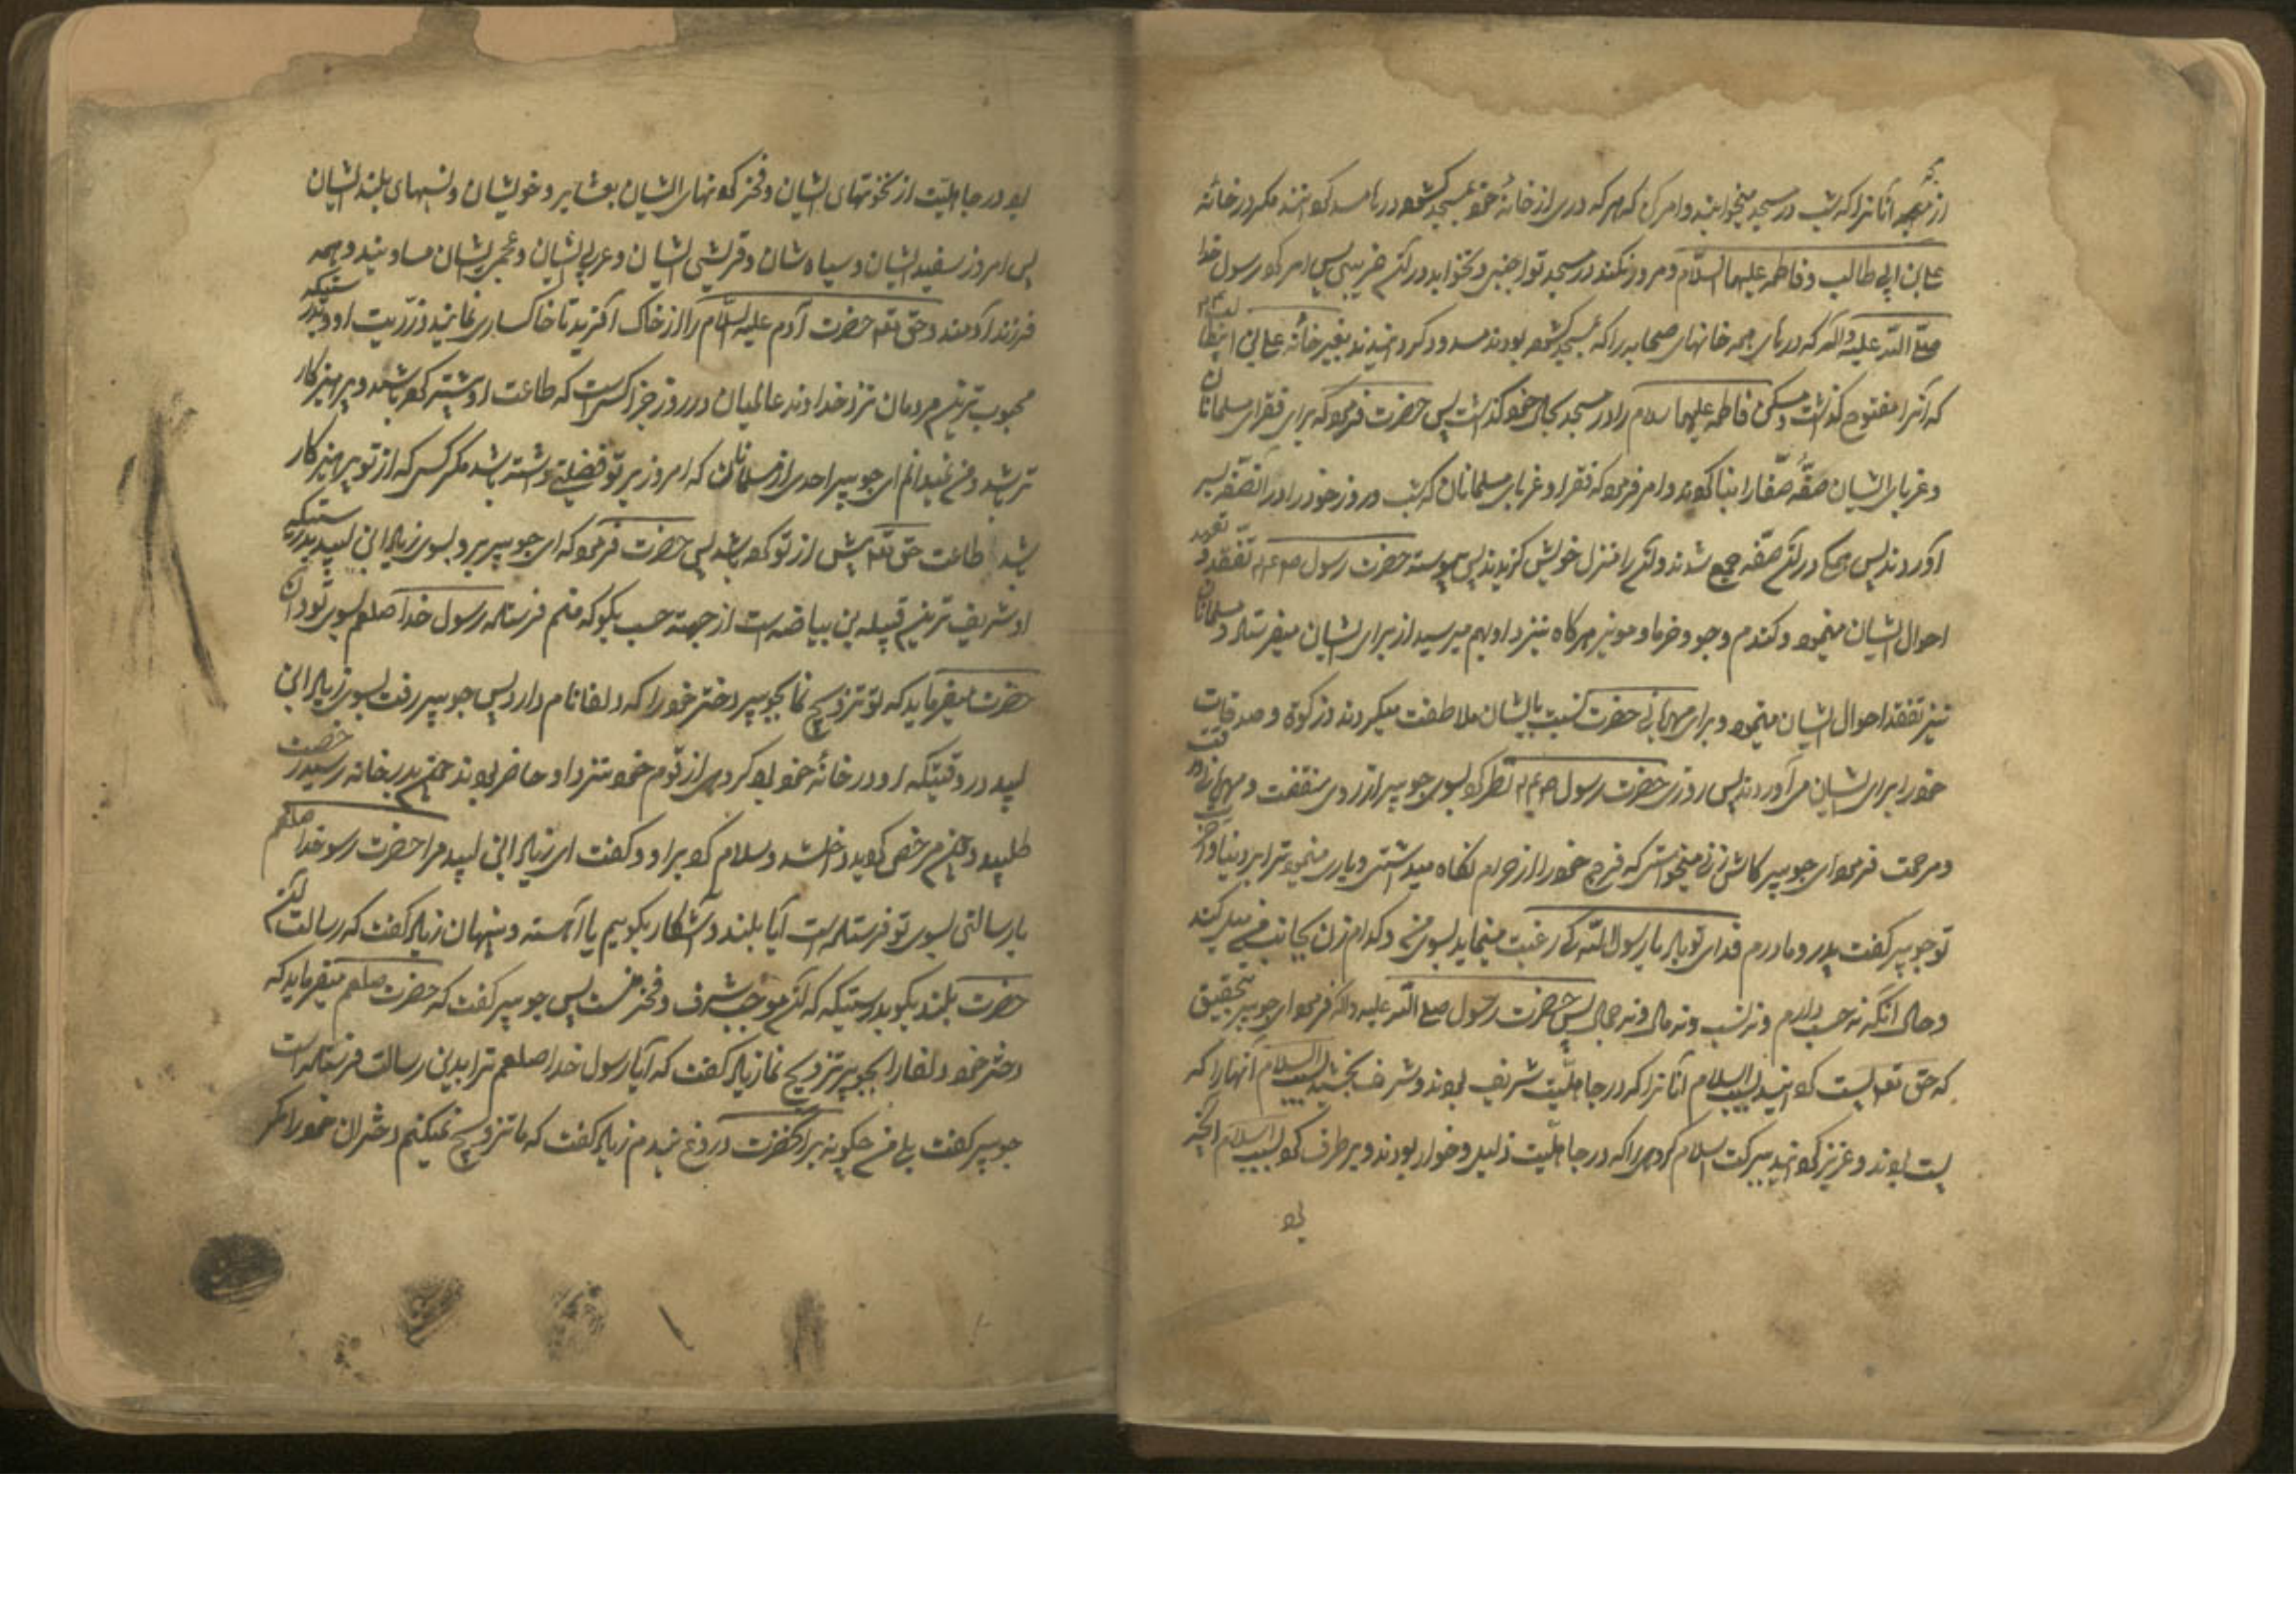 از مسجد آنانرا که شب در مسجد میخوابند و امر کن که هر که دری از خانهٔ خود بمسجد کشوده در را مسدود کردانند مکر در خانهٔ
علی بن ابی طالب و فاطمه علیهما السلام و مرور نکند در مسجد تو جنبی و نخوابد در آن غریبی پس امر کرد رسول خدا
صلی الله علیه و آله که درهای همه خانهای صحابه را که بمسجد کشوده بودند مسدود کردانیدند بغیر خانهٔ علی بن ابیطالب
که آنرا مفتوح کذاشت و مسکن فاطمه علیها سلام را در مسجد بحال خود کذاشت پس حضرت فرمود که برای فقرای مسلمانان
و غربای ایشان صفه بنا کردند و امر فرمود که فقرا و غربای مسلمانان که شب و روز خود را در آن صفه بسر
آوردند پس همکی در آن صفه جمع شدند و آن را منزل خویش کزیدند پس پیوسته حضرت رسول تفقد
احوال ایشان مینمود و کندم و جو و خرما و مویز هرکاه بنزد او بهم میرسید از برای ایشان میفرستاد و مسلمانان
نیز تفقد احوال ایشان مینمودند و برای مهربانی حضرت نسبت بایشان ملاطفت میکردند و زکوة و صدقات
خود را برای ایشان می آوردند پس روزی حضرت رسول نظر کرد بسوی جویبر از روی شفقت و مهربانی و رقت
و مرحمت فرمود ای جویبر کاش زنی میخواستی که فرج خود را از حرام نکاه میداشتی و یاری مینمود ترا بر دنیا و آخرت
تو جویبر کفت پدر و مادرم فدای تو باد یا رسول الله که رغبت مینماید بسوی من و کدام زن بجانب من میل کند
و حال آنکه نه حسب دارم و نه نسب و نه مال و نه جمال پس حضرت رسول صلی الله علیه و آله فرمود ای جویبر بتحقیق
که حق تعالی پست کردانید بسبب اسلام آنانرا که در جاهلیت شریف بودند و شریف بخشید بسبب اسلام آنها را که
پست بودند و عزیز کردانید ببرکت اسلام کروهی را که در جاهلیت ذلیل و خوار بودند و برطرف کرد بسبب اسلام آنچه
بود
بود در جاهلیت از نخوتهای ایشان و فخر کردنهای ایشان بعشایر و خویشان و نسبهای بلند ایشان
پس امروز سفید ایشان و سیاه شان و قرشی ایشان و عربی ایشان و عجمی ایشان مساویند و همه
فرزند آدمند و حق تعالی حضرت آدم علیه السلام را از خاک آفرید تا خاکساری نمایند ذریت او و بدرستیکه
محبوب ترین مردمان نزد خداوند عالمیان در روز جزا کسی است که طاعت او بیشتر کرده باشد و پرهیزکار
تر باشد و من نمیدانم ای جویبر احدی از مسلمانان که امروز بر تو فضیلتی داشته باشد مکر کسی که از تو پرهیزکار
باشد و طاعت حق تعالی بیش از تو کرده باشد پس حضرت فرمود که ای جویبر برو بسوی زیاد ابن لبید بدرستیکه
او شریف ترین قبیله بنی بیاضه است از جهت حسب بکو که منم فرستاده رسول خدا صلعم بسوی تو و آن
حضرت میفرماید که تو تزویج نما بجویبر دختر خود را که دلفا نام دارد پس جویبر رفت بسوی زیاد ابن
لبید در وقتیکه او در خانهٔ خود بود کروهی از قوم خود بنزد او حاضر بودند چون بدر خانه رسید رخصت
طلبید و چون مرخص کردید داخل شد و سلام کرد بر او و کفت ای زیاد ابن لبید مرا حضرت رسول خدا صلعم
با رسالتی بسوی تو فرستاده است آیا بلند و آشکار بکویم یا آهسته و پنهان زیاد کفت که رسالت آن
حضرت بلند بکو بدرستیکه که آن موجب شرف و فخر من است پس جویبر کفت که حضرت صلعم میفرماید که
دختر خود دلفا را بجویبر تزویج نما زیاد کفت که آیا رسول خدا صلعم ترا بدین رسالت فرستاده است
جویبر کفت بلی من چکونه بر آنحضرت دروغ بندم زیاد کفت که ما تزویج نمیکنیم دختران خود را مکر